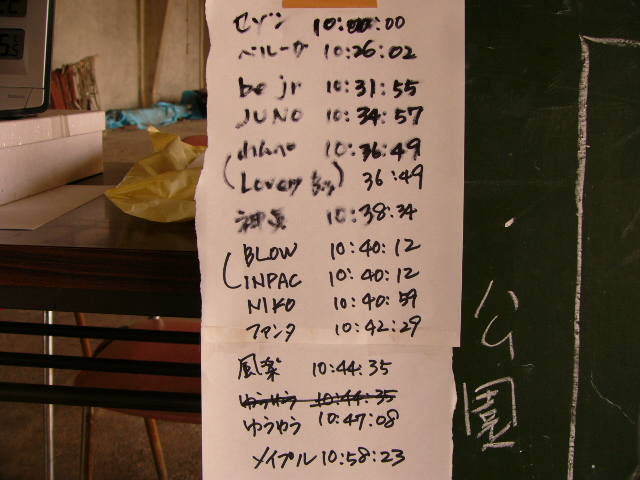 セゾン 10:00:00
ベルーガ 10:26:02
be jr 10:31:55
JUNO 10:34:57
10:36:49
(Lovery) 36:49
10:38:34
BLOW 10:40:12
INPAC 10:40:12
NIKO 10:40:59
ファンタ 10:42:29
風楽 10:44:35
ゆうゆう 10:44:35
ゆうゆう 10:47:08
メイプル 10:58:23
公園